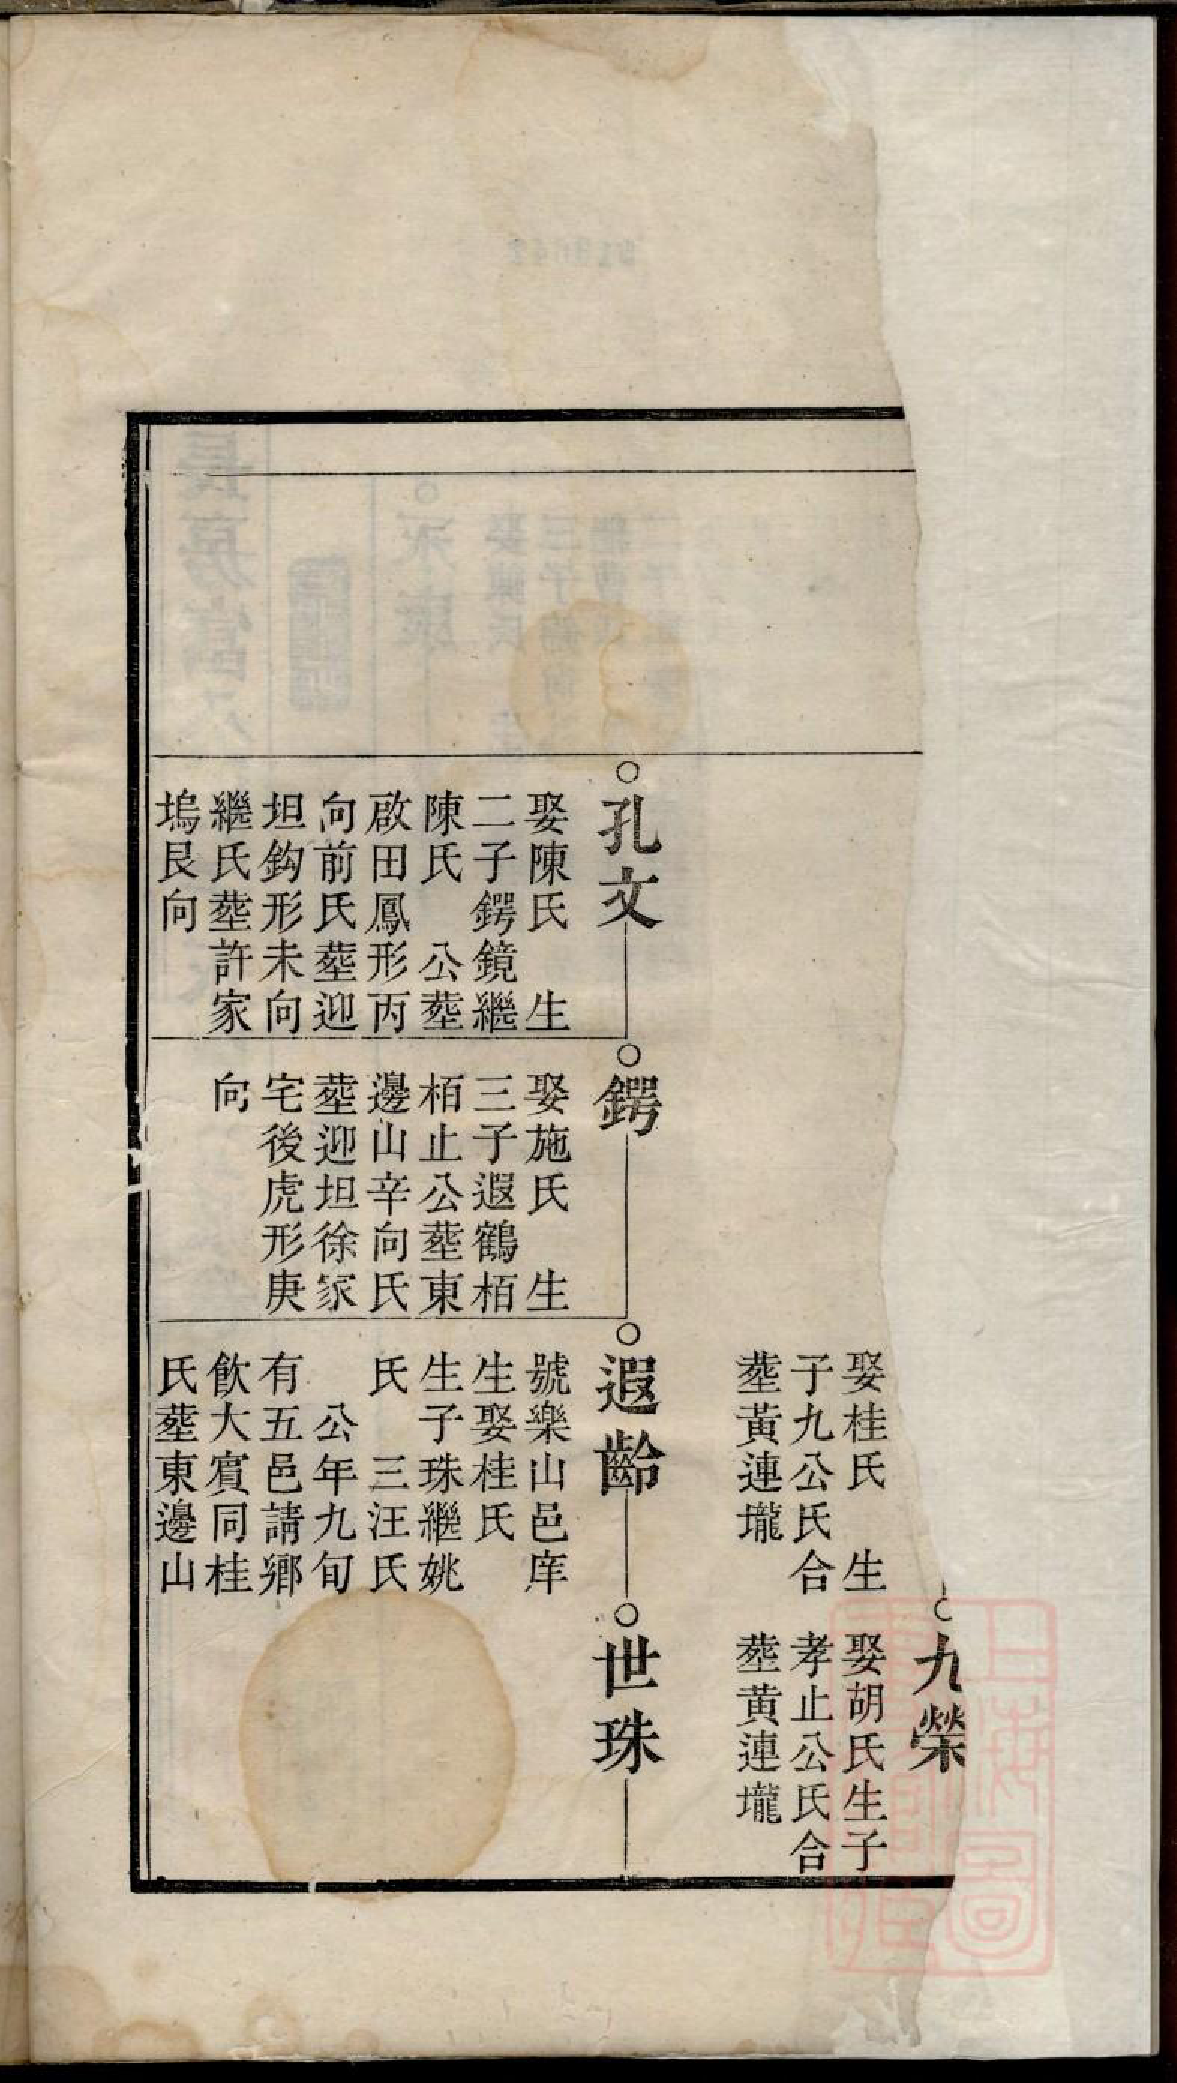 娶桂氏　生
子九公氏合
塟黃連壠
九榮
娶胡氏生子
孝止公氏合
塟黃連壠
孔文
娶陳氏　生
二子鍔鏡繼
陳氏　公塟
啟田鳳形丙
向前氏塟迎
坦鈎形未向
繼氏塟許家
塢艮向
鍔
娶施氏　生
三子遐鶴栢
栢止公塟東
邊山辛向氏
塟迎坦徐家
宅後虎形庚
向
遐齡
號樂山邑庠
生娶桂氏
生子珠繼姚
氏　三汪氏
公年九旬
有五邑請鄉
飲大賔同桂
氏塟東邊山
世珠